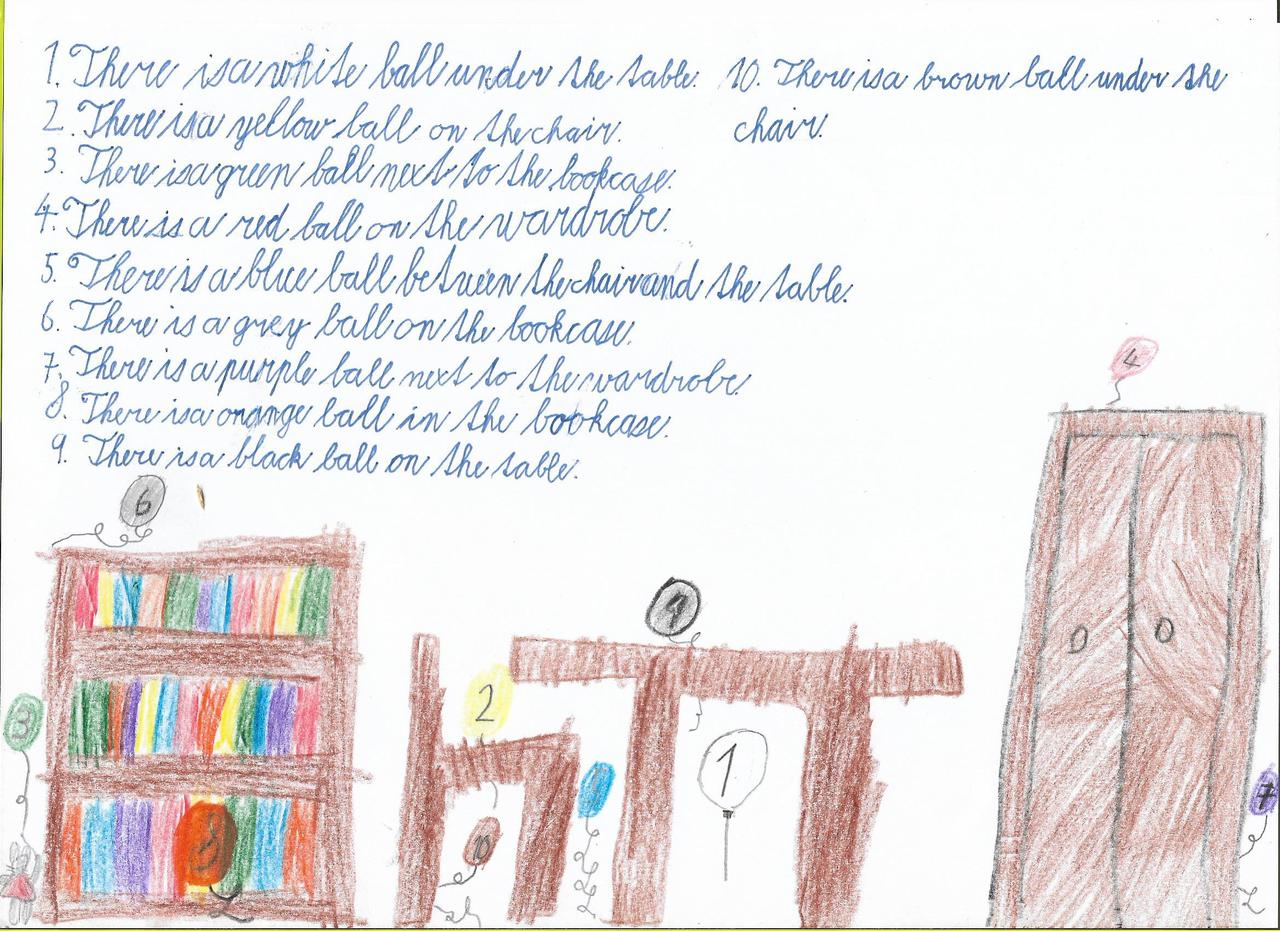 1. There is a white ball under the table.
2. There is a yellow ball on the chair.
3. There is a green ball next to the bookcase.
4. There is a red ball on the wardrobe.
5. There is a blue ball between the chair and the table.
6. There is a grey ball on the bookcase.
7. There is a purple ball next to the wardrobe.
8. There is a orange ball in the bookcase.
9. There is a black ball on the table.
10. There is a brown ball under the
chair.
4
6
9
2
3
1
7
8
10